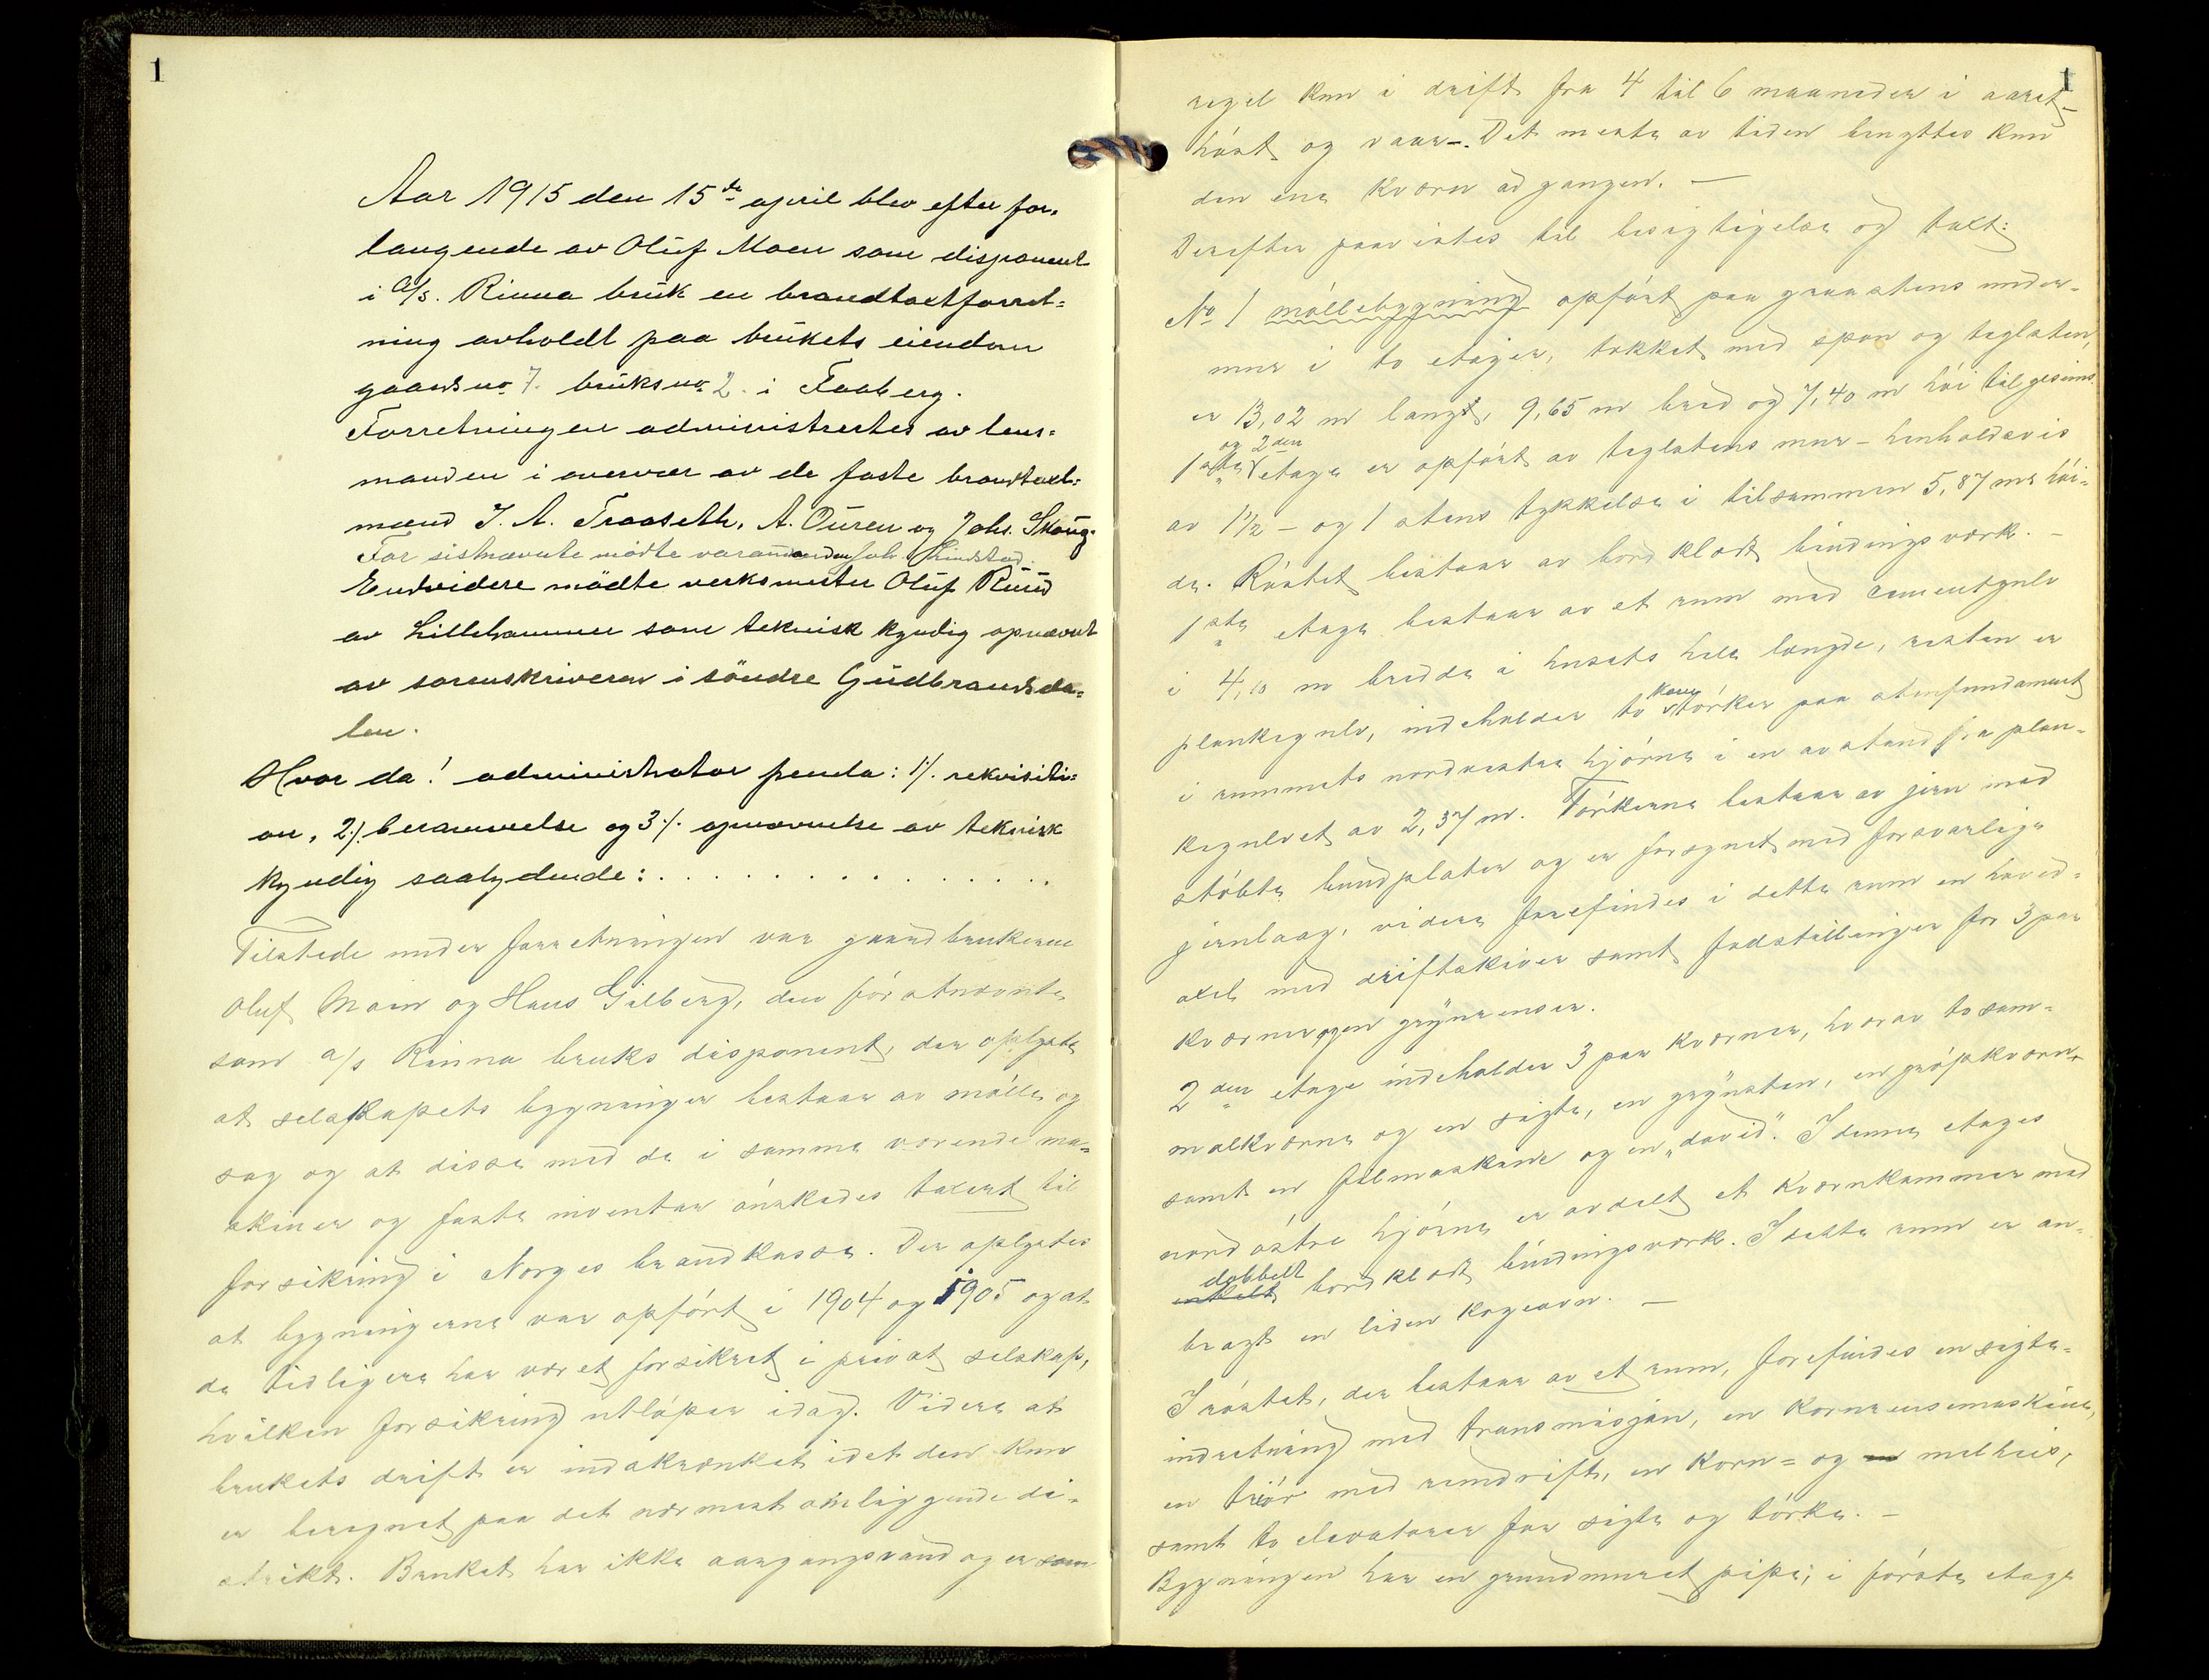 1
Aar 1915 den 15de april blev efter for-
langende av Oluf Moen som disponent
i A/s. Rinna bruk en brandtaxtforret-
ning avholdt paa brukets eiendom
gaardsno 7. bruksno 2. i Faaberg.
Forretningen administrertes av lens-
manden i overvær av de faste brandtaxt-
mænd J. A. Traaseth, A. Ouren og Johs. Skoug.
For sistnævnte mödte varamanden Joh. Lindstad.
Endvidere mödte verksmester Oluf Ruud
av Lillehammer som teknisk kyndig opnævnt
av sorenskriveren i söndre Gudbrandsda-
len.
Hvor da! administrator fremla: 1/. rekvisiti-
on, 2/. berammelse og 3/. opnævnelse av teknisk
kyndig saalydende: . . . . . . . . . . . . . .
Tilstede under forretningen var gaardbrukerne
Oluf Moen og Hans Gilberg, den förstnævnte
som a/s Rinna bruks disponent, der oplyste
at selskapets bygninger bestaar av mölle og
sag og at disse med de i samme værende ma-
skiner og faste inventar önskedes taxert til
forsikring i Norges brandkasse. Der oplystes
at bygningerne var opfört i 1904 og 1905 og at
de tidligere har været forsikret i privat selskap,
hvilken forsikring utlöper idag. Videre at
brukets drift er indskrænket idet den kun
er beregnet paa det nærmest omliggende di-
strikt. Bruket har ikke aargangsvand og er som
1
regel kun i drift fra 4 til 6 maaneder i aaret-
höst og vaar-. Det meste av tiden benyttes kun
den ene kværn ad gangen. —
Derefter paavistes til besigtigelse og taxt:
No 1 möllebygning opfört paa graastens under-
mur i to etager, tækket med spon og teglsten,
er 13,02 m lang, 9,65 m bred og 7,40 m höi til gesims.
og 2den
1ste etage er opfört av teglstens mur - henholdsvis
av 1½ - og 1 stens tykkelse i tilsammen 5,87 ms höi-
de. Röstet bestaar av bord klædt bindingsværk. -
1ste etage bestaar av et rum med cementgulv
i 4,10 m bredde i husets hele længde, resten er
plankegulv, indeholder to korntörker paa stenfundament
i rummets nordvestre hjörne i en avstand fra plan-
kegulvet av 2,37 m. Törkerne bestaar av jern med
stöbte bundplater og er forsynet med forsvarlige
jernlaag, videre forefindes i dette rum en hoved-
axel med driftskiver samt fodstillinger for 3 par
kværner og en grynrenser.
2den etage indeholder 3 par kværner, hvorav to sam-
malkværne og en sigte, en grynsten, en gröpkværn
samt en filmaskine og en „david". I denne etages
nordöstre hjörne er avdelt et kværnkammer med
dobbelt
enkelt bordklædt bindingsværk. I dette rum er an-
bragt en liden kogeovn. —
I röstet, der bestaar av et rum, forefindes en sigte-
indretning med transmisjon, en kornrensemaskine,
en triör med remdrift, en korn= og en melheis,
samt to elevatorer for sigte og törke. -
Bygningen har en grundmuret pipe; i förste etage